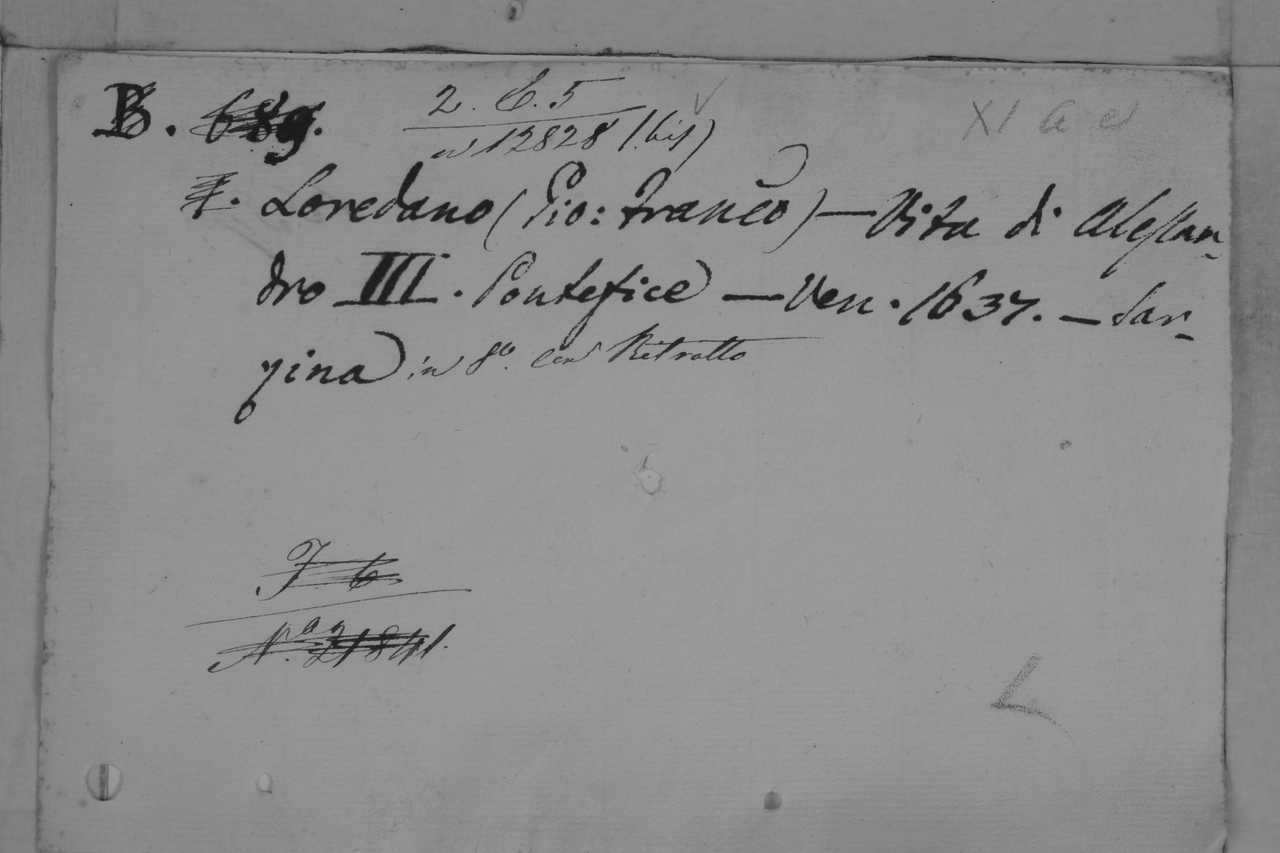 B. 689.
2. C. 5
n 12828 (bis)
XI a
Loredano (Gio: Franco) — Vita di Alessan-
dro III. Pontefice — Ven. 1637. — Sar-
zina in 8° con Ritratto
J 6
N.° 21841.
L